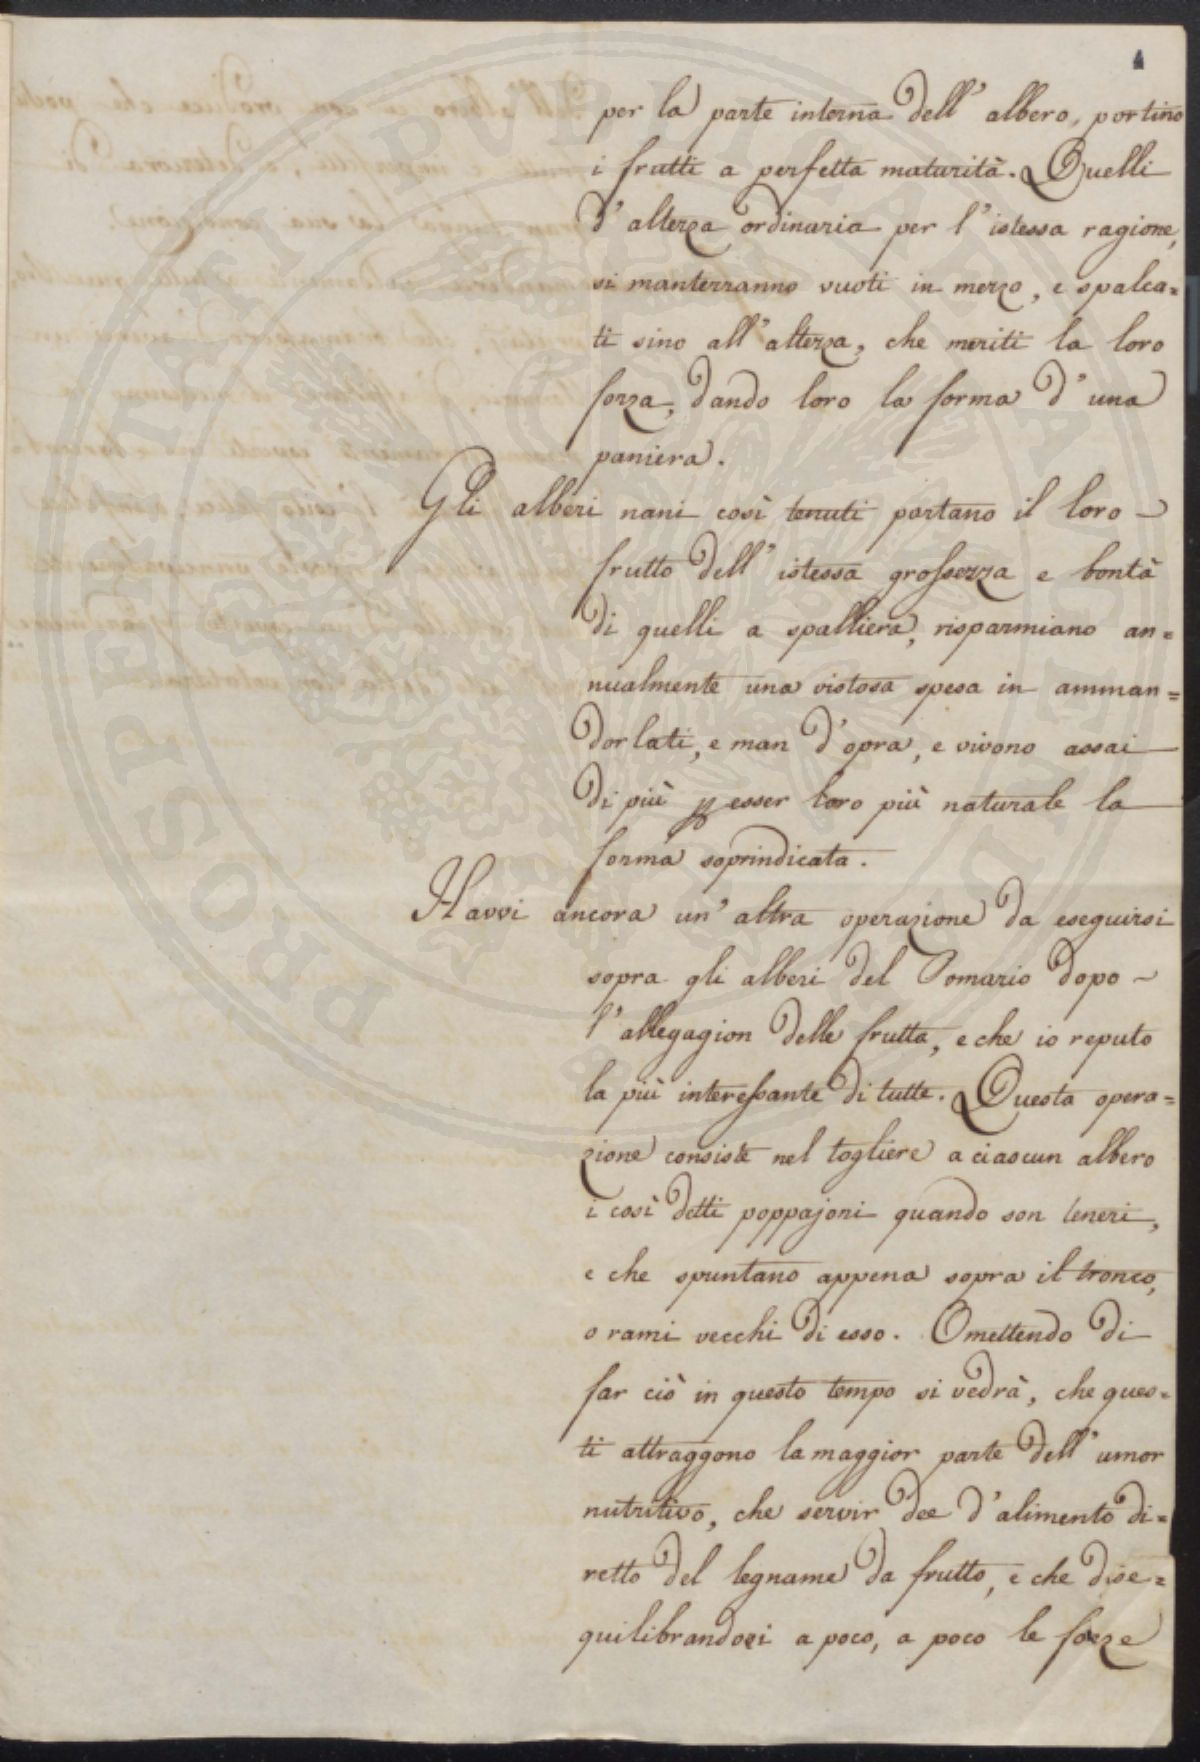 4
per la parte interna dell' albero, portino
i frutti a perfetta maturità. Quelli
d' altezza ordinaria per l' istessa ragione,
si manterranno vuoti in mezzo, e spalca=
ti sino all' altezza, che meriti la loro
forza, dando loro la forma d' una
paniera.
Gli alberi nani così tenuti portano il loro
frutto dell' istessa grossezza e bontà
di quelli a spalliera, risparmiano an=
nualmente una vistosa spesa in amman=
dorlati, e man d' opra, e vivono assai
di più p esser loro più naturale la
forma soprindicata.
Havvi ancora un' altra operazione da eseguirsi
sopra gli alberi del Pomario dopo
l' allegagion delle frutta, e che io reputo
la più interessante di tutte. Questa opera=
zione consiste nel togliere a ciascun albero
i così detti poppajoni quando son teneri,
e che spuntano appena sopra il tronco,
o rami vecchi di esso. Omettendo di
far ciò in questo tempo si vedrà, che ques=
ti attraggono la maggior parte dell' umor
nutritivo, che servir dee d' alimento di=
retto del legname da frutto, e che dise=
quilibrandosi a poco, a poco le forze
PROSPERITATI PVBLICAE